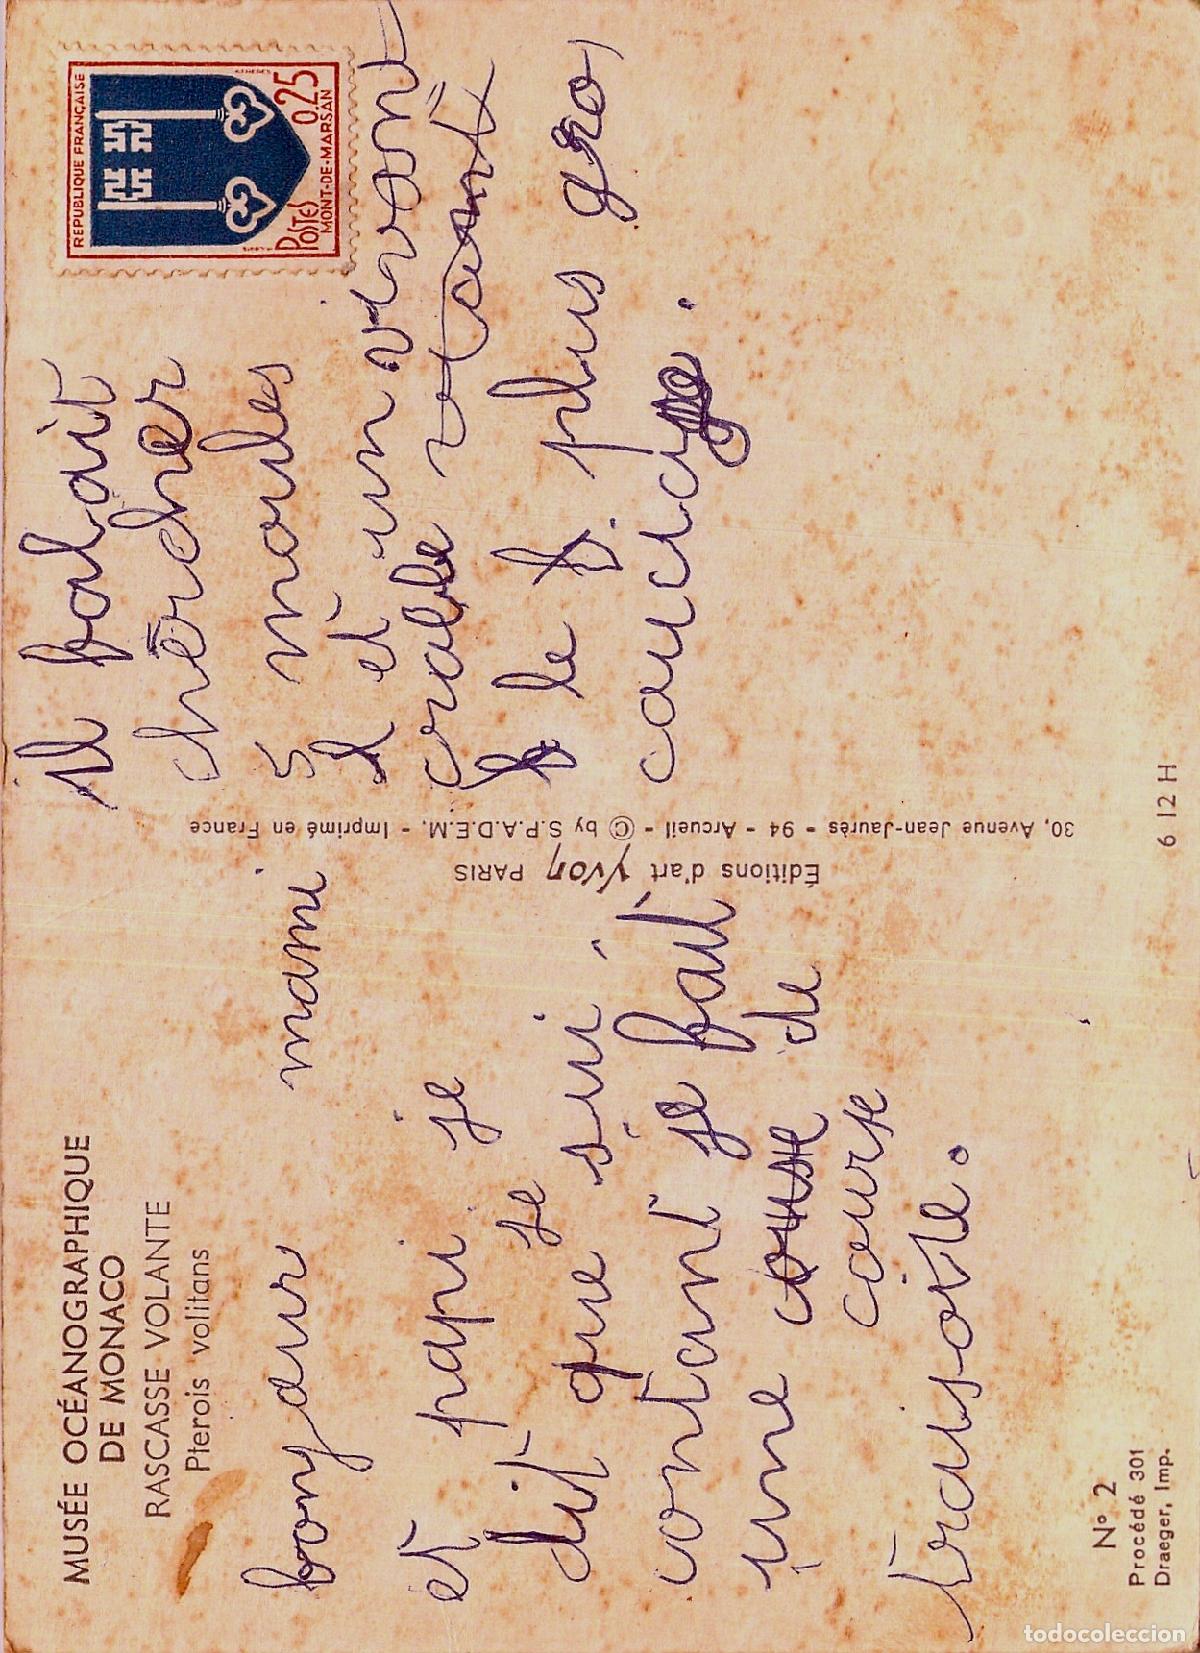 MUSÉE OCÉANOGRAPHIQUE
DE MONACO
RASCASSE VOLANTE
Pterois volitans
bonjour mami
et papi je
dit que je sui
contant je fait
une couse de
course
traisore.
Nº 2
Procédé 301
Draeger, Imp.
Éditions d'art Yvon PARIS
30, Avenue Jean-Jaurès - 94 - Arcueil - © by S.P.A.D.E.M. - Imprimé en France
RÉPUBLIQUE FRANÇAISE
0.25
POSTES
MONT-DE-MARSAN
il falait
chercher
5 moules
et un vivant
crabe vivant
le plus gro
6 12 H
todocoleccion